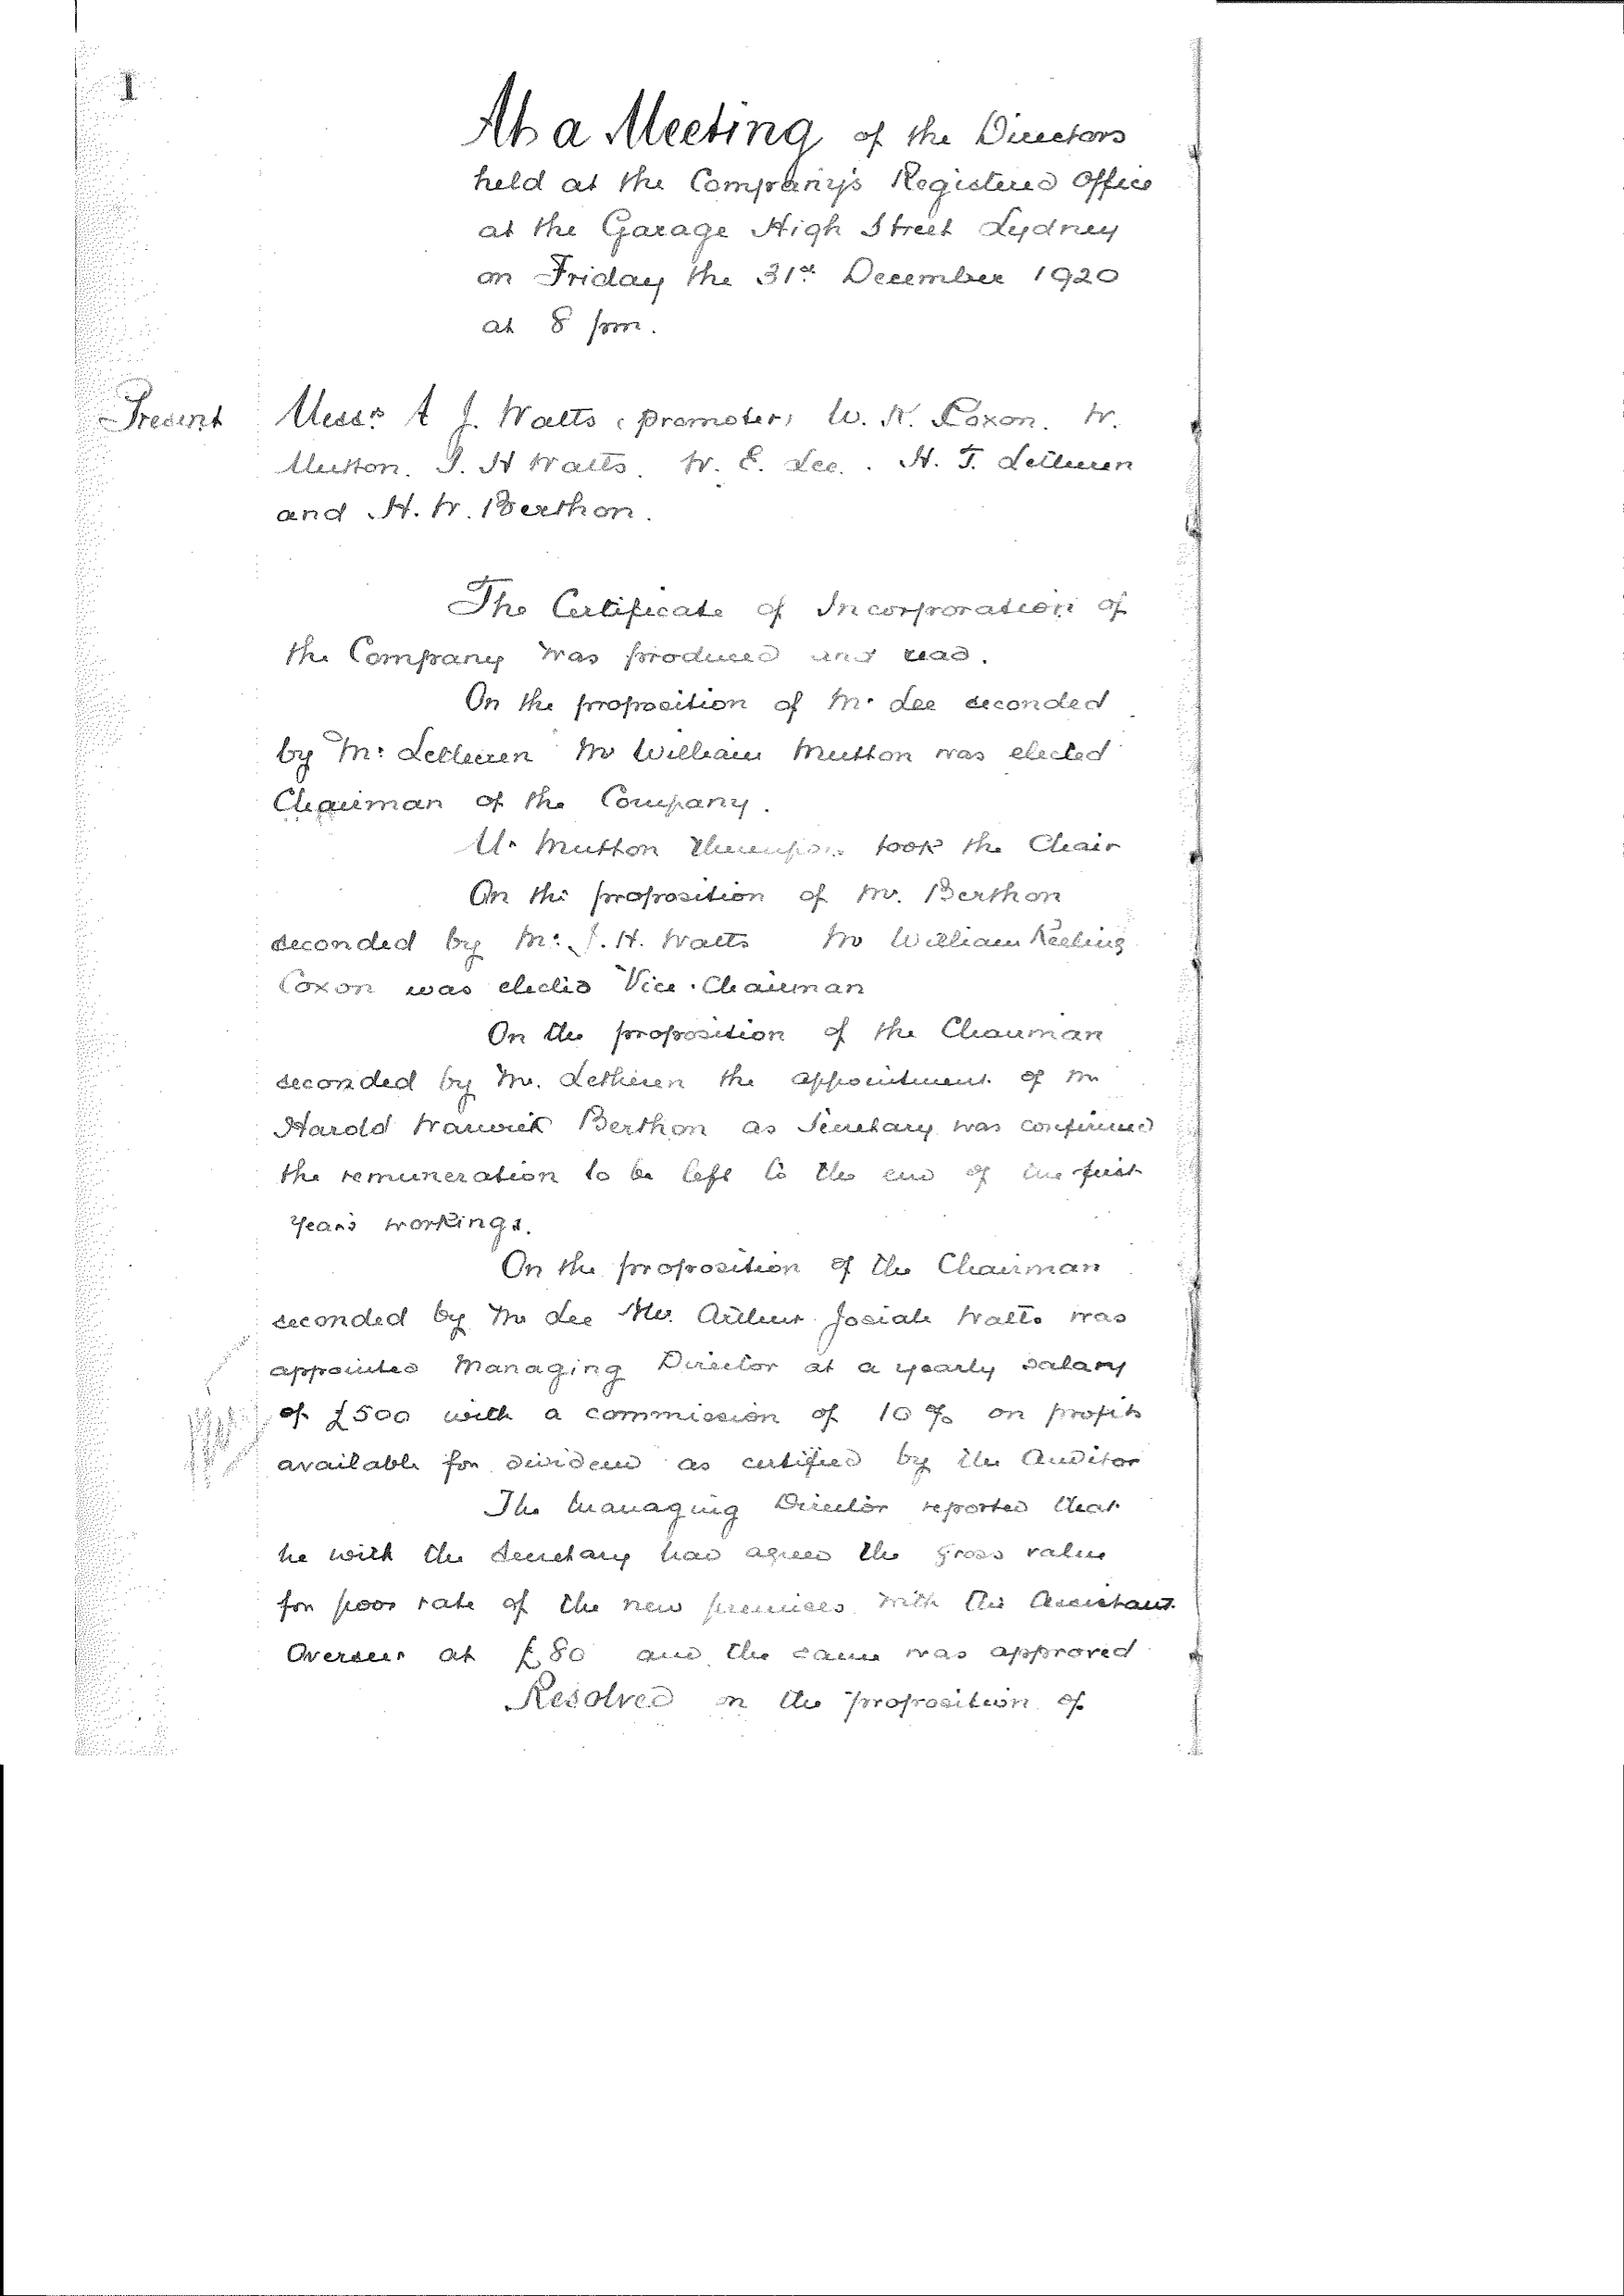 1
At a Meeting of the Directors
held at the Company's Registered Office
at the Garage High Street Lydney
on Friday the 31st December 1920
at 8 pm.
Present Messrs A J. Watts (promoter) W. K. Coxon. W.
Mutton. J. H Watts. W. E. Lee. H. T. Letheren
and H. W. Berthon.
The Certificate of Incorporation of
the Company was produced and read.
On the proposition of Mr Lee seconded
by Mr Letheren Mr William Mutton was elected
Chairman of the Company.
Mr Mutton thereupon took the Chair
On the proposition of Mr. Berthon
seconded by Mr J. H. Watts Mr William Keeling
Coxon was elected Vice-Chairman
On the proposition of the Chairman
seconded by Mr. Letheren the appointment of Mr
Harold Warwick Berthon as Secretary was confirmed
the remuneration to be left to the end of the first
years workings.
On the proposition of the Chairman
seconded by Mr Lee Mr. Arthur Josiah Watts was
appointed Managing Director at a yearly salary
of £500 with a commission of 10% on profits
available for dividend as certified by the Auditor
The Managing Director reported that
he with the Secretary had agreed the gross value
for poor rate of the new premises with the Assistant
Overseer at £80 and the same was approved
Resolved on the proposition of